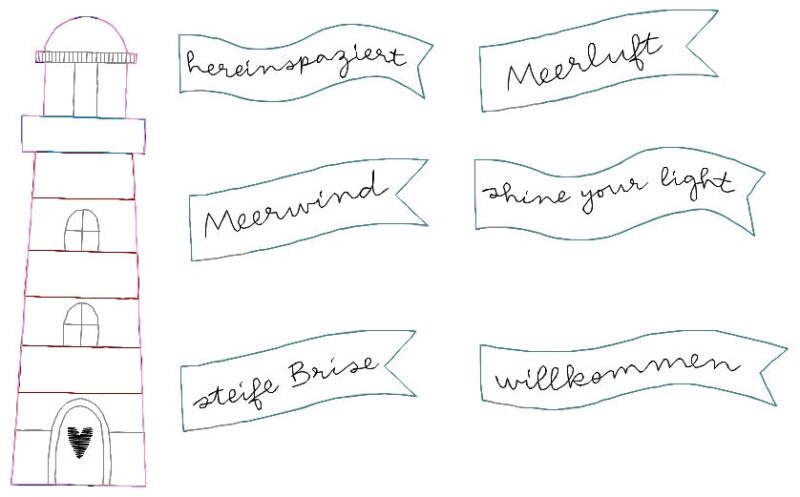 hereinspaziert
Meerluft
Meerwind
shine your light
steife Brise
willkommen